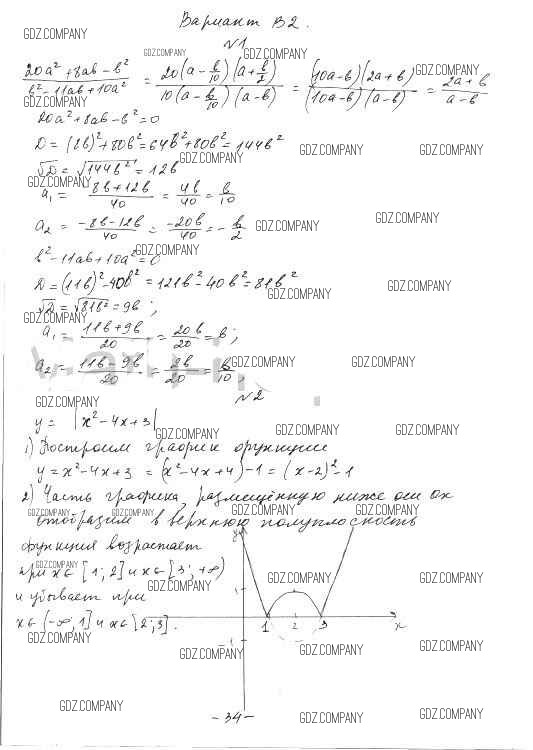 Вариант В2.
№1
(20a² + 8ab - b²)/(b² - 11ab + 10a²) = (20(a - b/10)(a + b/2))/(10(a - b/10)(a - b)) = ((10a - b)(2a + b))/((10a - b)(a - b)) = (2a + b)/(a - b)
20a² + 8ab - b² = 0
D = (8b)² + 80b² = 64b² + 80b² = 144b²
√D = √144b² = 12b
a₁ = (8b + 12b)/40 = 4b/40 = b/10
a₂ = (-8b - 12b)/40 = -20b/40 = -b/2
b² - 11ab + 10a² = 0
D = (11b)² - 40b² = 121b² - 40b² = 81b²
√D = √81b² = 9b;
a₁ = (11b + 9b)/20 = 20b/20 = b;
a₂ = (11b - 9b)/20 = 2b/20 = b/10;
№2
y = |x² - 4x + 3|
1) Построим график функции
y = x² - 4x + 3 = (x² - 4x + 4) - 1 = (x - 2)² - 1
2) Часть графика, размещённую ниже оси ох
отобразим в верхнюю полуплоскость
функция возрастает
при x∈[1; 2] и x∈[3; +∞)
и убывает при
x∈(-∞, 1] и x∈[2; 3].
y
1
1 2 3 x
-1
- 34 -
GDZ.COMPANY